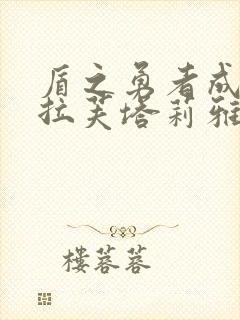 盾之勇者成
拉芙塔莉雅
楼蓉蓉